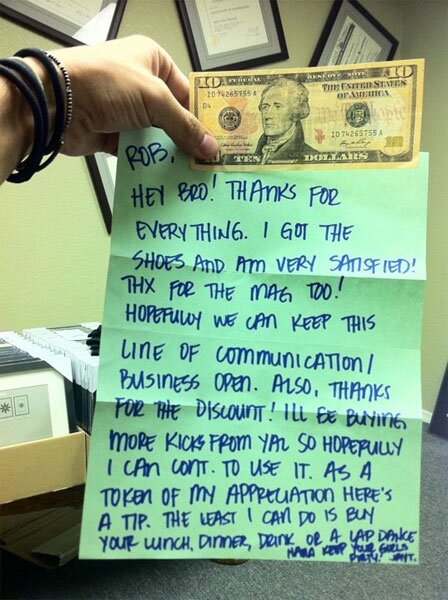 10 FEDERAL RESERVE NOTE 10
THE UNITED STATES
OF AMERICA
ID 74265755 A
D4
ID 74265755 A
TEN DOLLARS
ROB,
HEY BRO! THANKS FOR
EVERYTHING. I GOT THE
SHOES AND AM VERY SATISFIED!
THX FOR THE MAG TOO!
HOPEFULLY WE CAN KEEP THIS
LINE OF COMMUNICATION/
BUSINESS OPEN. ALSO, THANKS
FOR THE DISCOUNT! I'LL BE BUYING
MORE KICKS FROM YAL SO HOPEFULLY
I CAN CONT. TO USE IT. AS A
TOKEN OF MY APPRECIATION HERE'S
A TIP. THE LEAST I CAN DO IS BUY
YOUR LUNCH, DINNER, DRINK OR A LAP DANCE
HAHA KEEP YOUR GIRLS